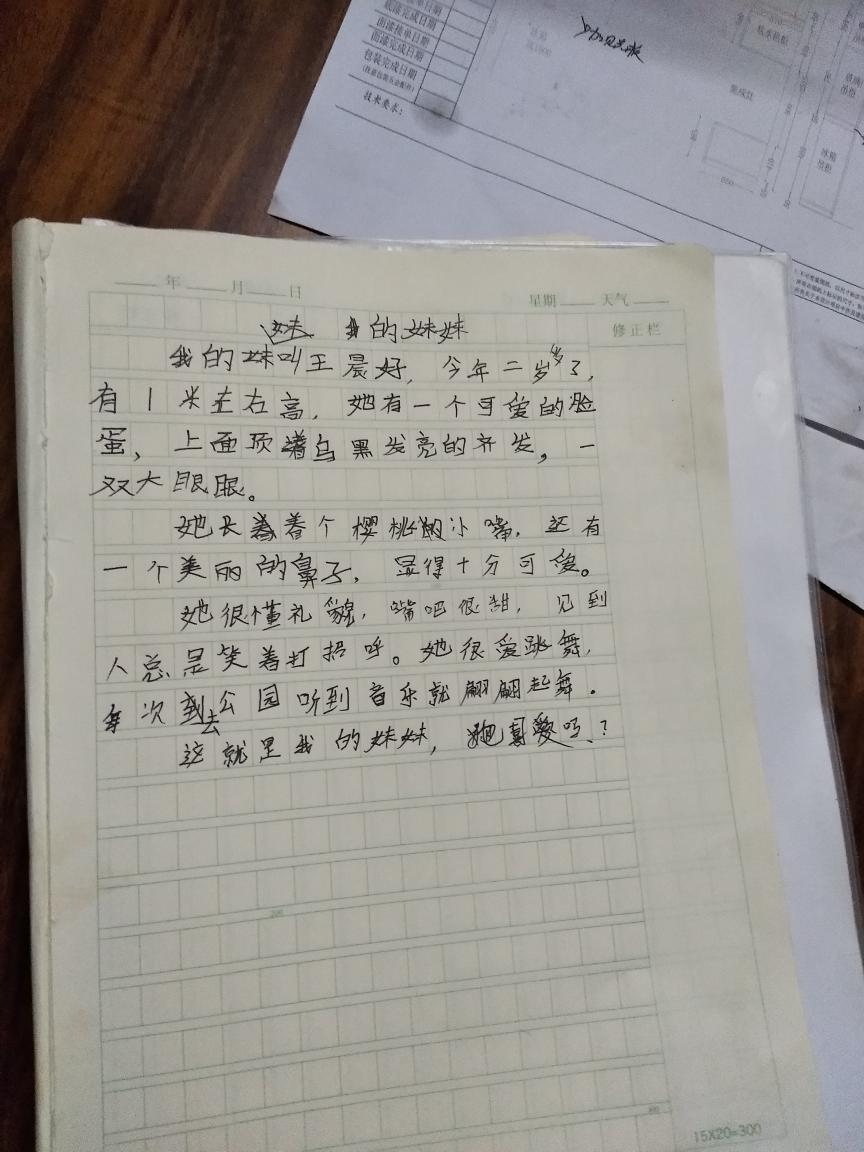 底漆完成日期
面漆接单日期
面漆完成日期
包装完成日期
技术要求:
集成灶
冰箱
吊柜
年 月 日
星期 天气
修正栏
妹 我的妹妹
我的妹叫王晨好,今年二岁多了,
有1米左右高,她有一个可爱的脸
蛋,上面顶着乌黑发亮的齐发,一
双大眼眼。
她长着个樱桃般的小嘴,还有
一个美丽的鼻子,显得十分可爱。
她很懂礼貌,嘴吧很甜,见到
人总是笑着打招呼。她很爱跳舞,
每次去公园听到音乐就翩翩起舞。
这就是我的妹妹,喜爱吗?
200
300
15X20=300